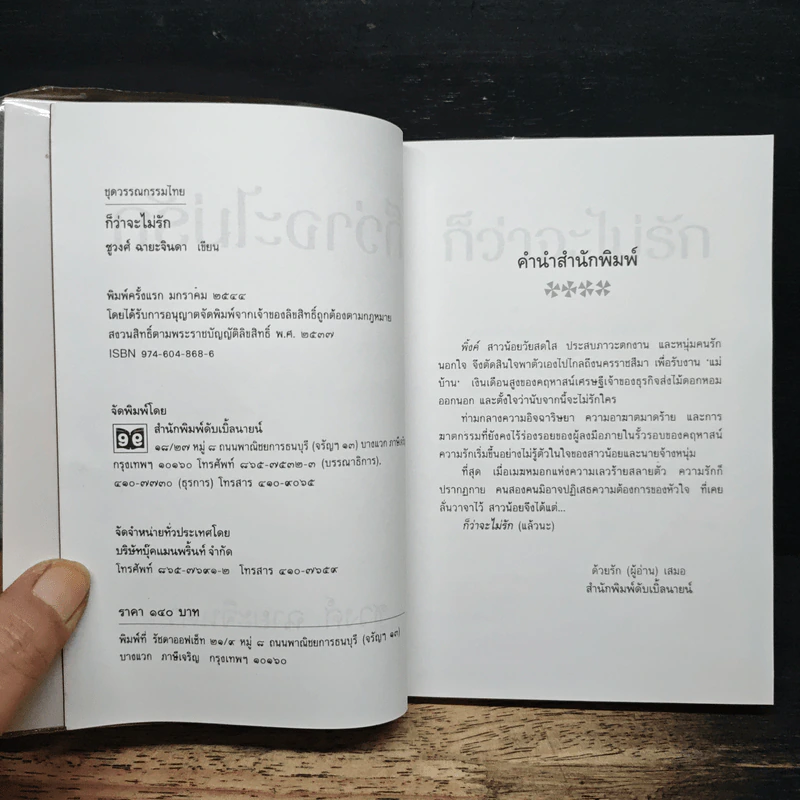 ชุดวรรณกรรมไทย
ก็ว่าจะไม่รัก
ชูวงศ์ ฉายะจินดา เขียน
พิมพ์ครั้งแรก มกราคม ๒๕๔๔
โดยได้รับการอนุญาตจัดพิมพ์จากเจ้าของลิขสิทธิ์ถูกต้องตามกฎหมาย
สงวนสิทธิ์ตามพระราชบัญญัติลิขสิทธิ์ พ.ศ. ๒๕๓๗
ISBN 974-604-868-6
จัดพิมพ์โดย
สำนักพิมพ์ดับเบิ้ลนายน์
๑๘/๒๗ หมู่ ๘ ถนนพาณิชยการธนบุรี (จรัญฯ ๑๓) บางแวก
กรุงเทพฯ ๑๐๑๖๐ โทรศัพท์ ๘๖๕-๗๕๓๒-๓ (บรรณาธิการ),
๔๑๐-๗๗๓๐ (ธุรการ) โทรสาร ๔๑๐-๙๐๖๕
จัดจำหน่ายทั่วประเทศโดย
บริษัทบุ๊คแมนพริ้นท์ จำกัด
โทรศัพท์ ๘๖๕-๗๖๙๑-๒ โทรสาร ๔๑๐-๗๖๕๙
ราคา ๑๔๐ บาท
พิมพ์ที่ รัชดาออฟเซ็ท ๒๑/๙ หมู่ ๘ ถนนพาณิชยการธนบุรี (จรัญฯ ๑๓)
บางแวก ภาษีเจริญ กรุงเทพฯ ๑๐๑๖๐
คำนำสำนักพิมพ์
พิ้งค์ สาวน้อยวัยสดใส ประสบภาวะตกงาน และหนุ่มคนรัก
นอกใจ จึงตัดสินใจพาตัวเองไปไกลถึงนครราชสีมา เพื่อรับงาน 'แม่
บ้าน' เงินเดือนสูงของคฤหาสน์เศรษฐีเจ้าของธุรกิจส่งไม้ดอกหอม
ออกนอก และตั้งใจว่านับจากนี้จะไม่รักใคร
ท่ามกลางความอิจฉาริษยา ความอาฆาตมาดร้าย และการ
ฆาตกรรมที่ยังคงไว้ร่องรอยของผู้ลงมือภายในรั้วรอบของคฤหาสน์
ความรักเริ่มขึ้นอย่างไม่รู้ตัวในใจของสาวน้อยและนายจ้างหนุ่ม
ที่สุด เมื่อเมฆหมอกแห่งความเลวร้ายสลายตัว ความรักก็
ปรากฏกาย คนสองคนมิอาจปฏิเสธความต้องการของหัวใจ ที่เคย
ลั่นวาจาไว้ สาวน้อยจึงได้แต่...
ก็ว่าจะไม่รัก (แล้วนะ)
ด้วยรัก (ผู้อ่าน) เสมอ
สำนักพิมพ์ดับเบิ้ลนายน์